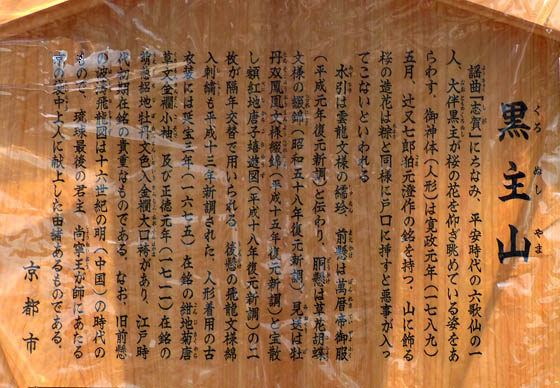 黒主山
くろぬしやま
謡曲「志賀」にちなみ、平安時代の六歌仙の一
人、大伴黒主が桜の花を仰ぎ眺めている姿をあ
らわす。御神体（人形）は寛政元年（一七八九）
五月、辻又七郎狛元澄作の銘を持つ。山に飾る
桜の造花は粽と同様に戸口に挿すと悪事が入っ
てこないといわれる
水引は雲龍文様の繻珍、前懸は萬暦帝御服
（平成元年復元新調）と伝わり、胴懸は草花胡蝶
文様の綴錦（昭和五十八年復元新調）、見送は牡
丹双鳳凰文様綴錦（平成十五年復元新調）と宝散
し額紅地唐子嬉遊図（平成十八年復元新調）の二
枚が隔年交替で用いられる。後懸の飛龍文様綿
入刺繍も平成十三年新調された。人形着用の古
衣装には延宝三年（一六七五）在銘の紺地菊唐
草文金襴小袖、及び正徳元年（一七一一）在銘の
萌黄絽地牡丹文色入金襴大口袴があり、江戸時
代初期在銘の貴重なものである。なお、旧前懸
の波濤飛龍図は十六世紀の明（中国）の時代の
もので、琉球最後の君主、尚寧王が師にあたる
京の袋中上人に献上した由緒あるものである。
京都市